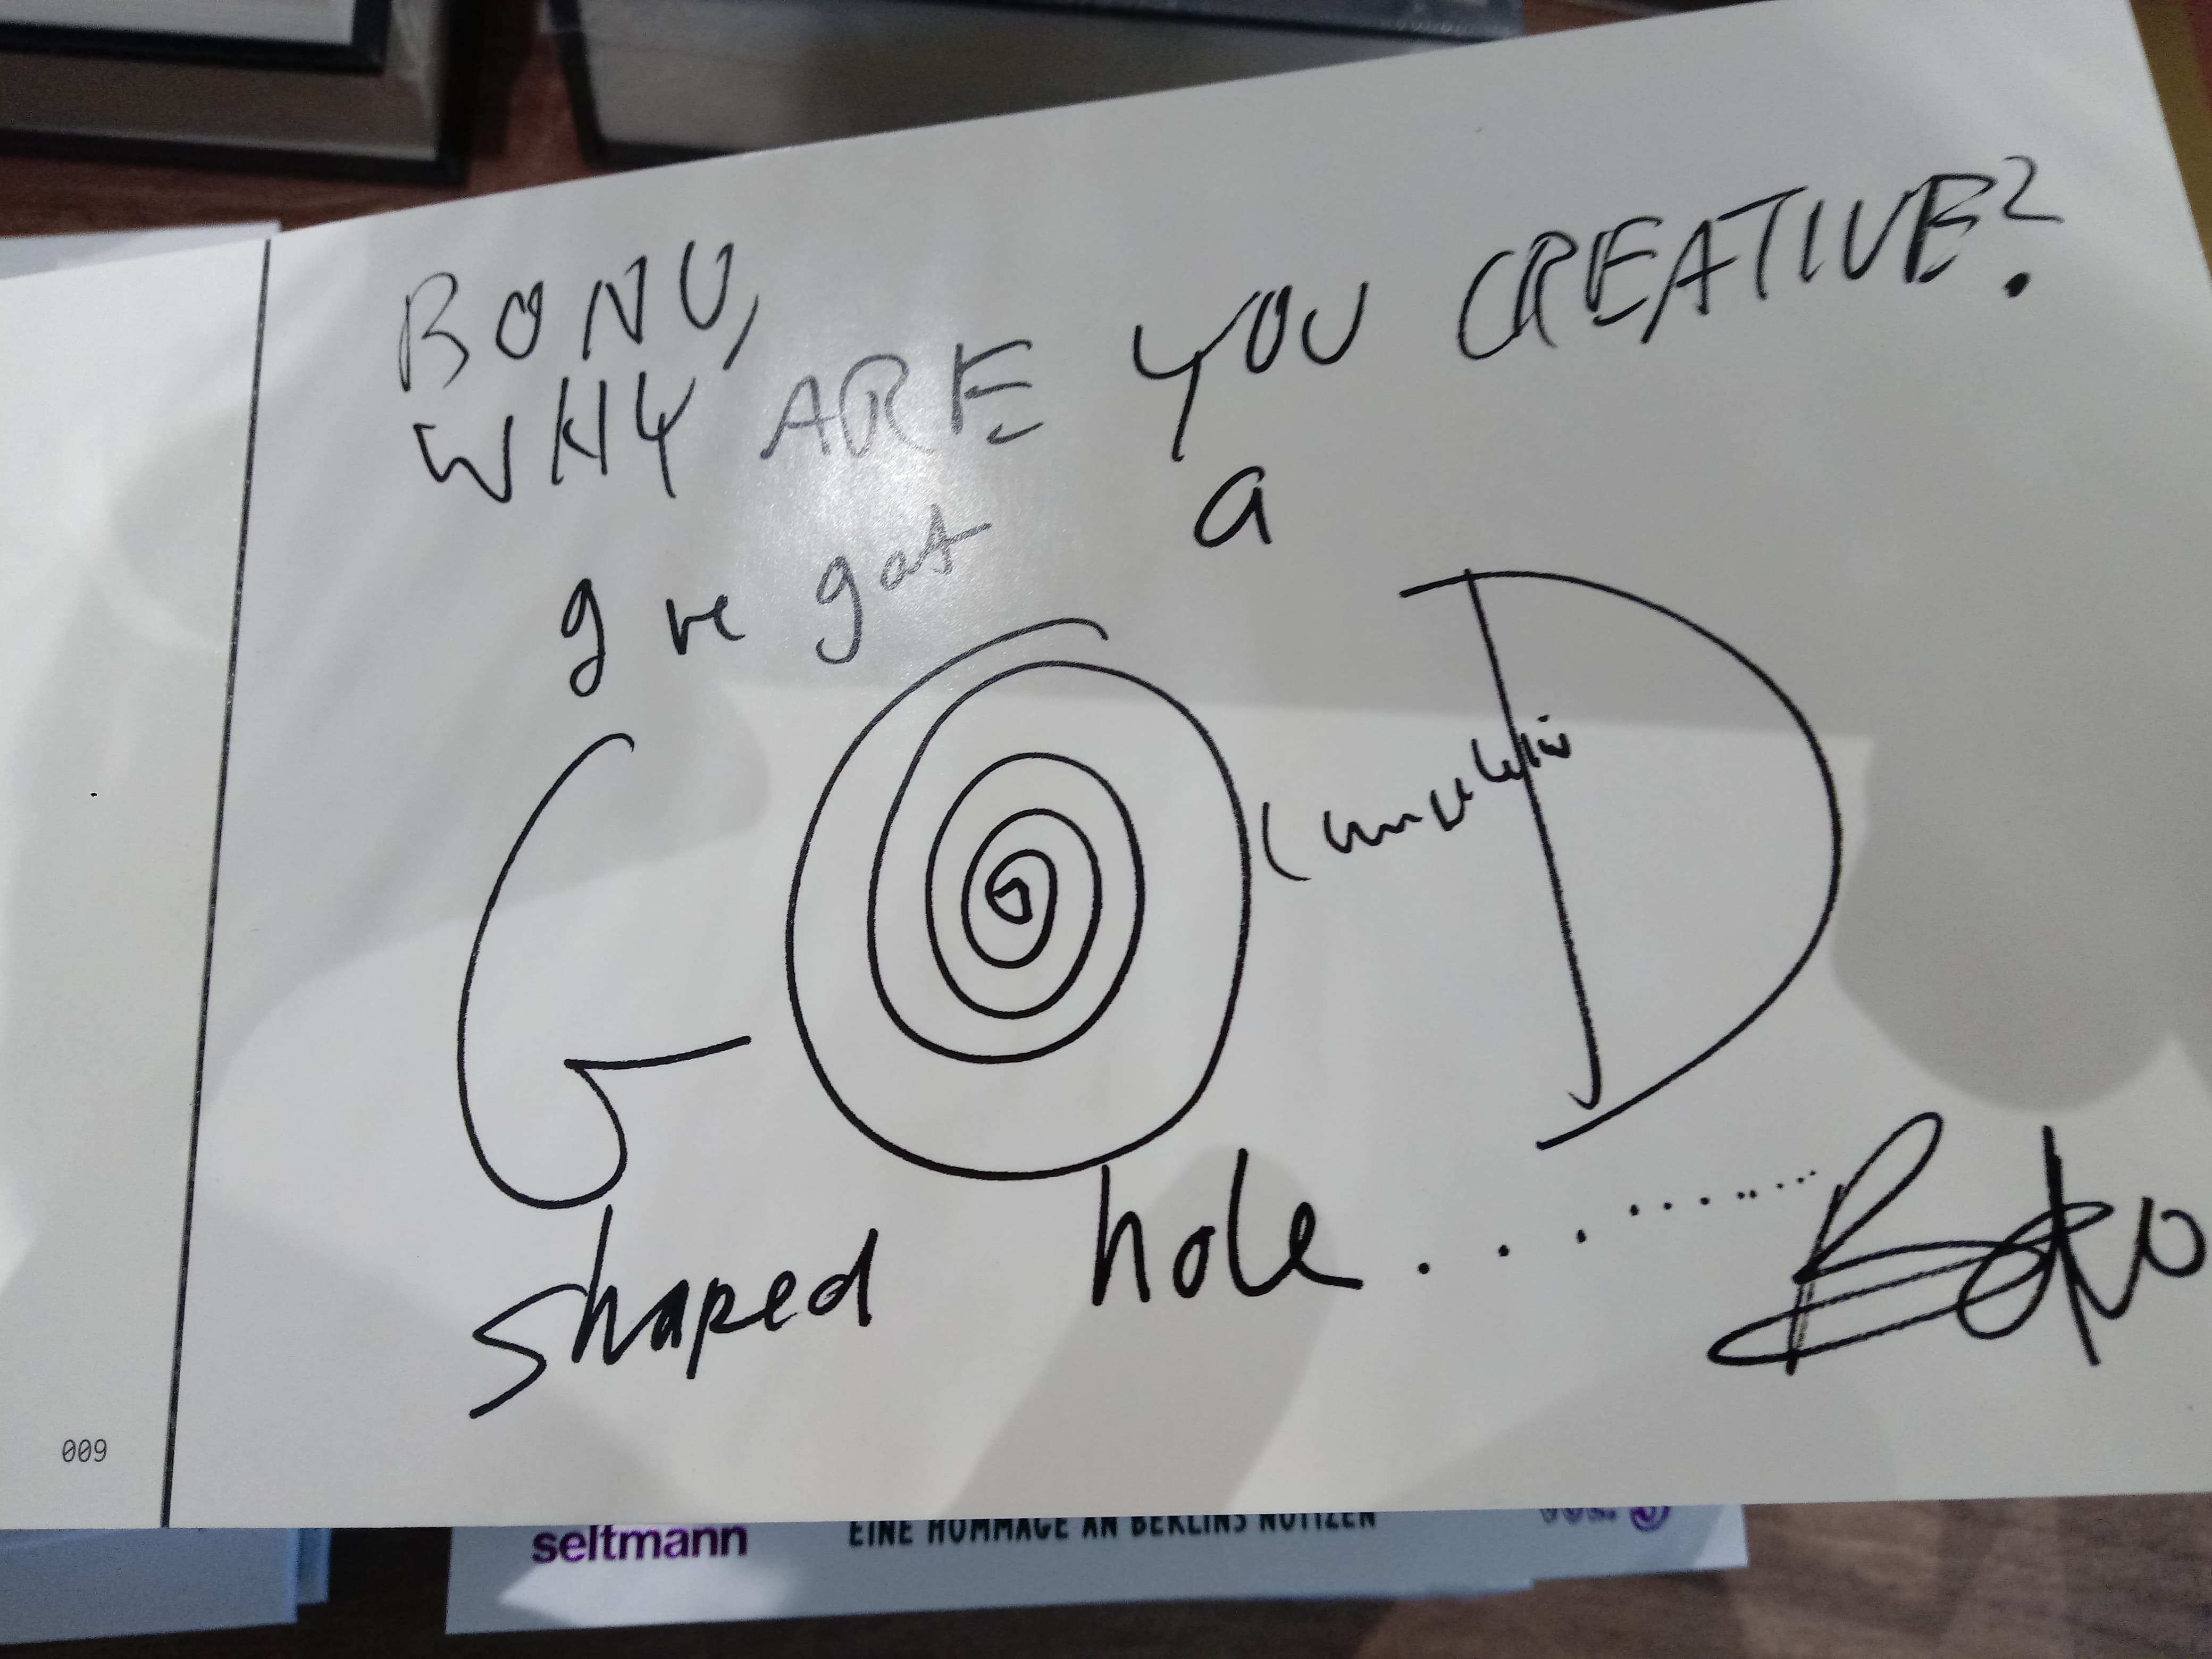 BONO,
WHY ARE YOU CREATIVE?
I ve got a
GOD
shaped hole..........
Bono
009
seltmann
EINE HOMMAGE AN BERLINS NOTIZEN
VOL. 3